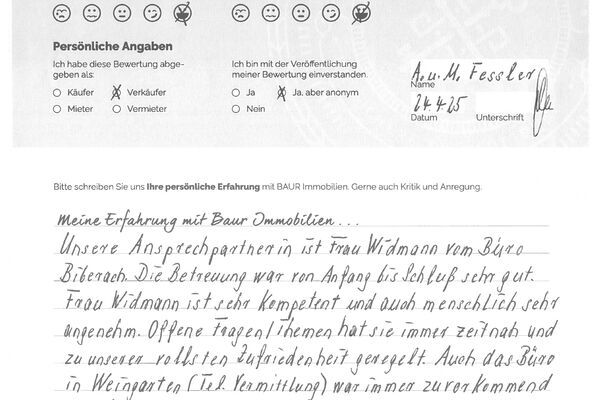 Persönliche Angaben
Ich habe diese Bewertung abge-
geben als:
Käufer
Verkäufer
Mieter
Vermieter
Ich bin mit der Veröffentlichung
meiner Bewertung einverstanden.
Ja
Ja, aber anonym
Nein
A. u. M. Fessler
Name
24.4.25
Datum
Unterschrift
Bitte schreiben Sie uns Ihre persönliche Erfahrung mit BAUR Immobilien. Gerne auch Kritik und Anregung.
Meine Erfahrung mit Baur Immobilien...
Unsere Ansprechpartnerin ist Frau Widmann vom Büro
Biberach. Die Betreuung war von Anfang bis Schluß sehr gut.
Frau Widmann ist sehr kompetent und auch menschlich sehr
angenehm. Offene Fragen/Themen hat sie immer zeitnah und
zu unserer vollsten Zufriedenheit geregelt. Auch das Büro
in Weingarten (Tel. Vermittlung) war immer zuvorkommend